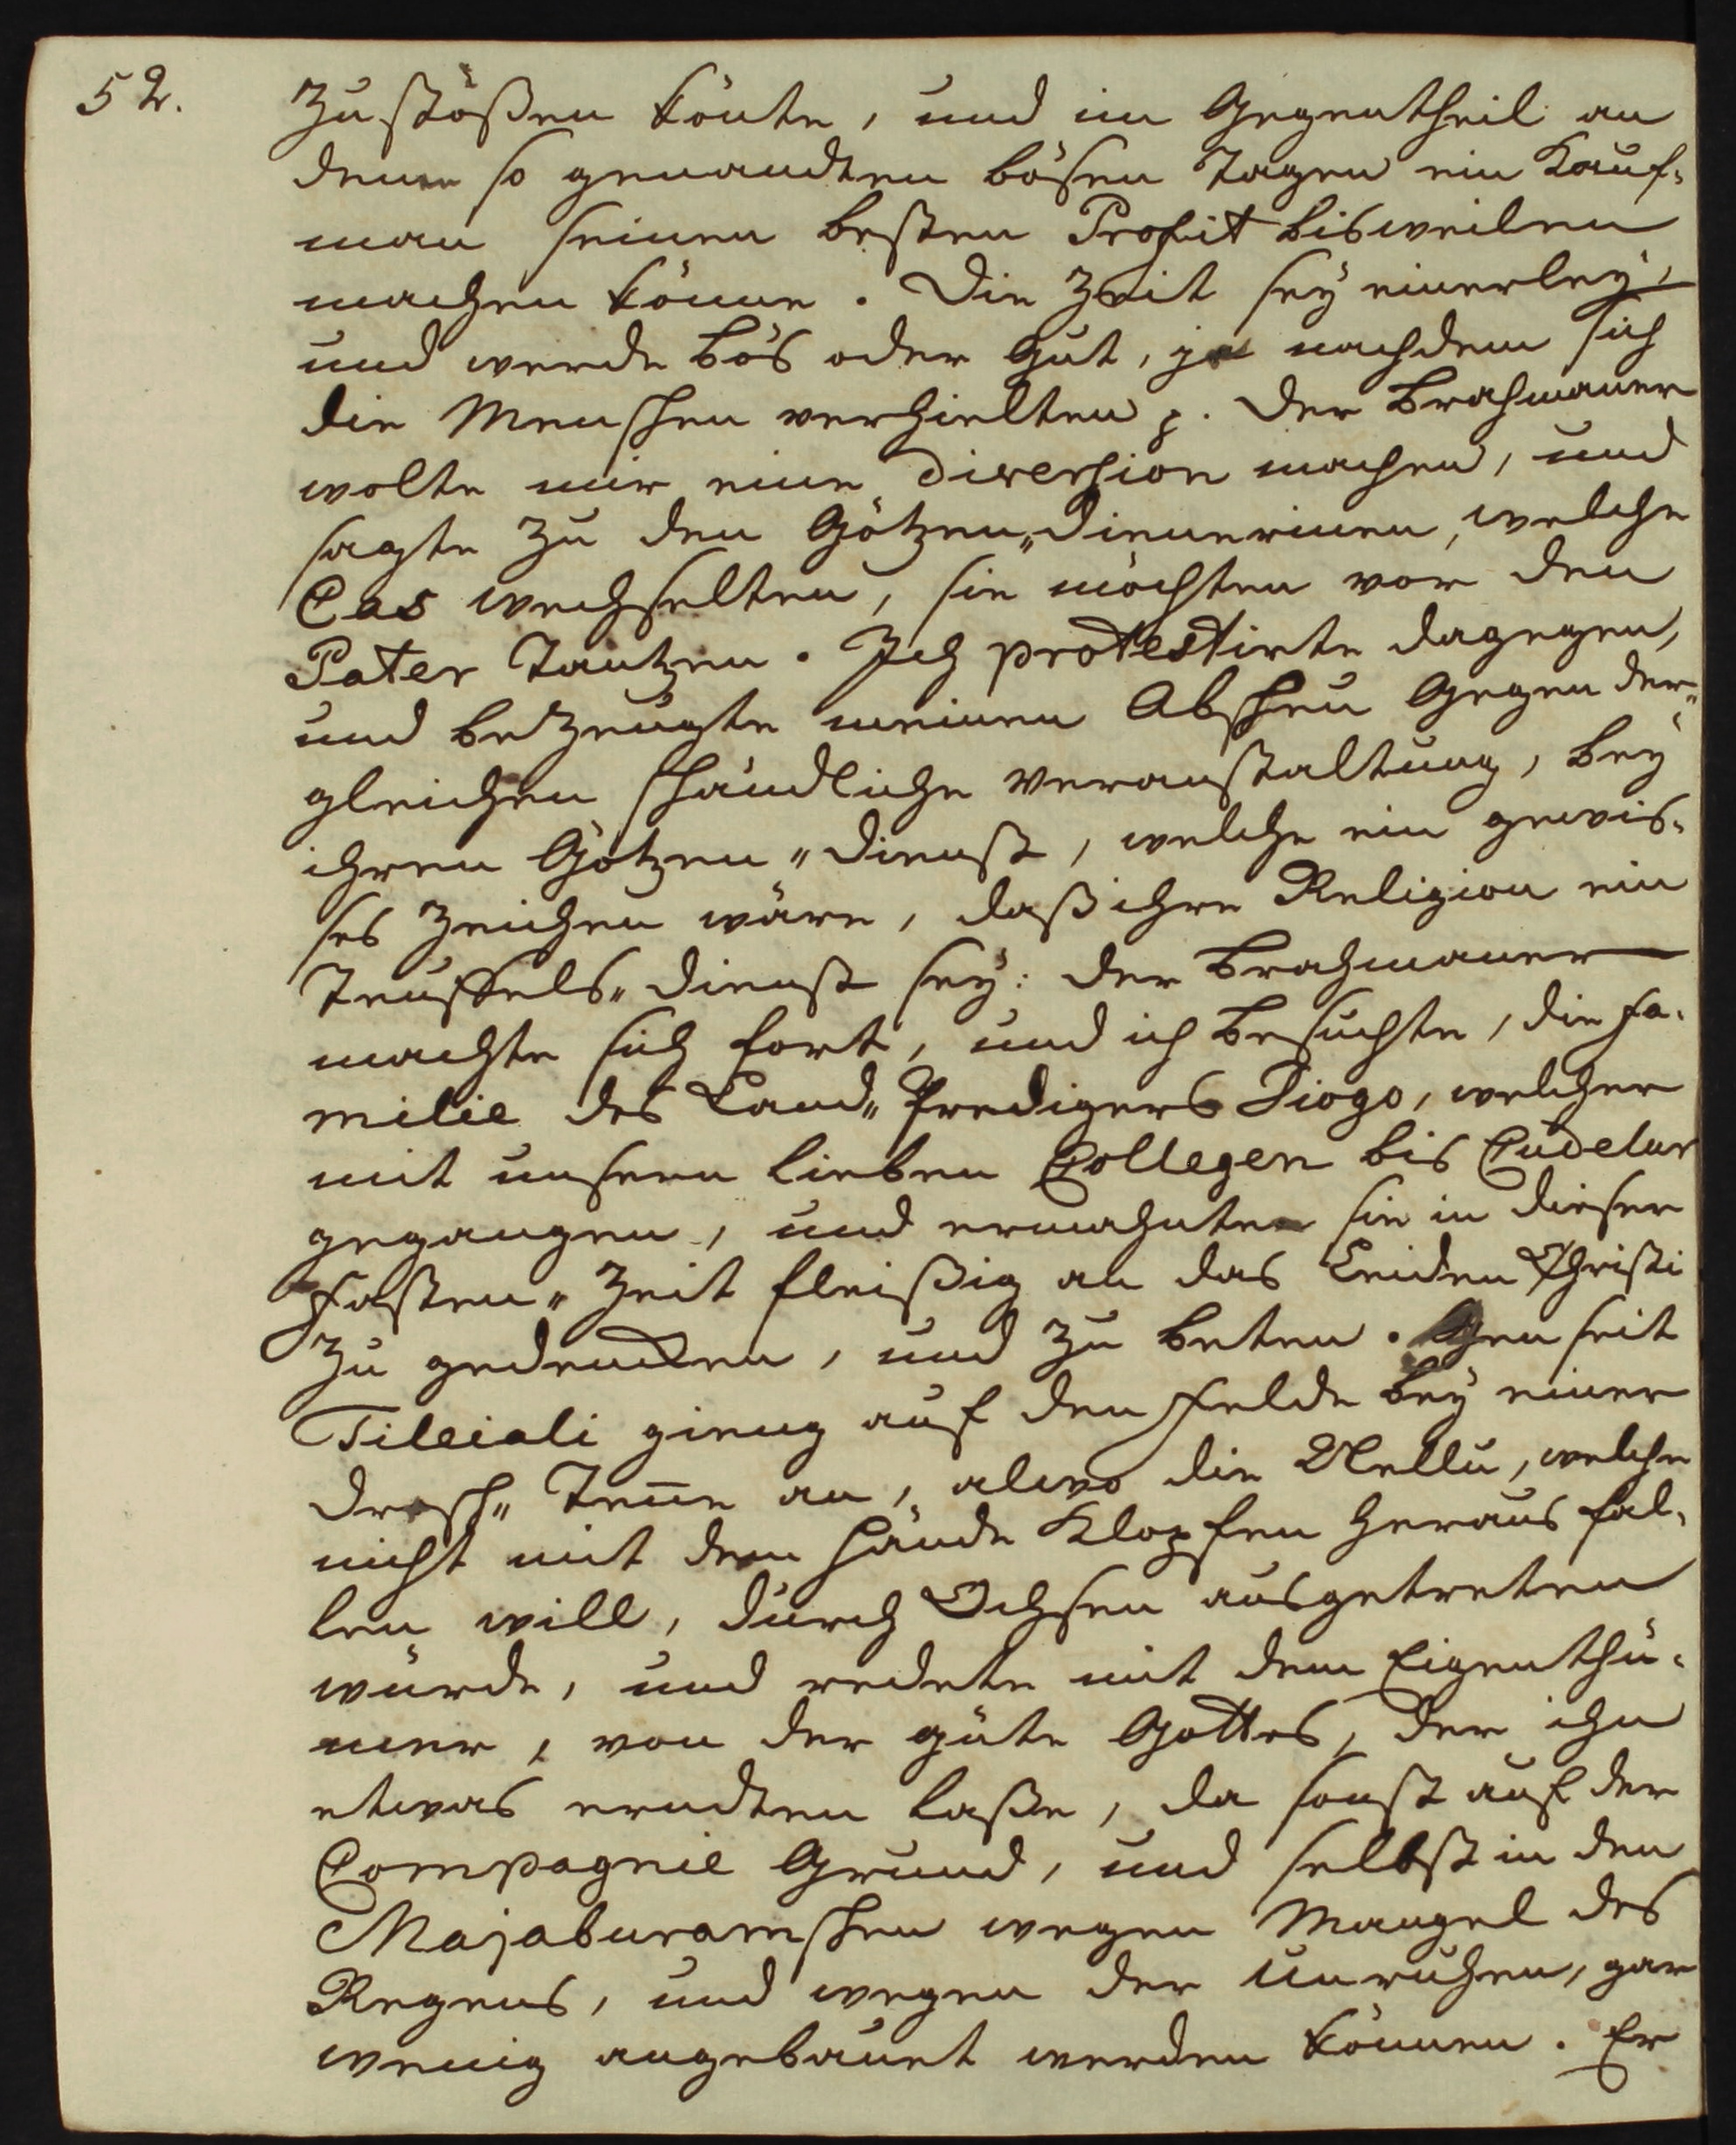 52.
zustößen könte, und im Gegentheil an
denen so genandten bösen Tagen ein Kauf-
man seinen besten Profit bisweilen
machen könne. Die Zeit sey einerley,
und werde bös oder gut, je nachdem sich
die Menschen verhielten p. Der Brahmaner
wolte mir eine diversion machen, und
sagte zu den Götzen„dienerinen, welche
Cas wechselten, sie möchten vor den
Pater Tantzen. Ich protestirte dagegen,
und bezeugte meinen Abscheu gegen der„
gleichen schändliche Veranstaltung, bey
ihren Götzen„dienst, welche ein gewis-
ses Zeichen wäre, daß ihre Religion ein
Teuffels„dienst sey: der Brahmaner
machte sich fort, und ich besuchte, die Fa-
milie des Land„Predigers Diogo, welcher
mit unsern lieben Collegen bis Cudelur
gegangen, und ermahnte sie in dieser
Fasten„Zeit fleißig an das Leiden Christi
zu gedencken, und zu beten. Jenseit
Tilleiali gieng auf den Felde bey einer
Dresch„Teñe an, alwo die Nellu, welche
nicht mit dem Hände Klopfen heraus fal-
len will, durch Ochsen ausgetreten
wurde, und redete mit dem Eigenthü-
mer, von der güte Gottes, der ihn
etwas erndten laße, da sonst auf der
Compagnie Grund, und selbst in den
Majaburamschen wegen Mangel des
Regens, und wegen der Unruhen, gar
wenig angebauet werden können. Er